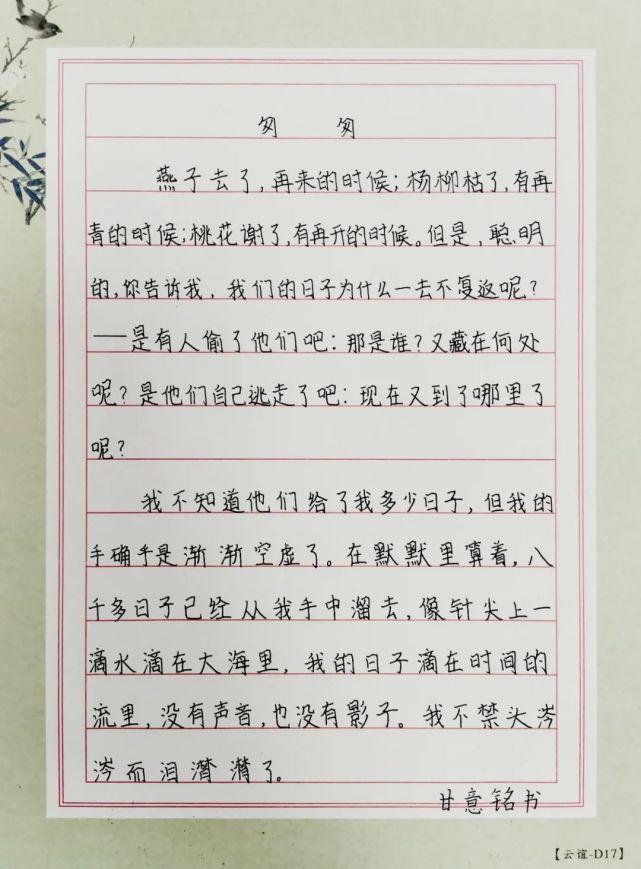 匆 匆
燕子去了,再来的时候;杨柳枯了,有再
青的时候;桃花谢了,有再开的时候。但是,聪明
的,你告诉我,我们的日子为什么一去不复返呢?
——是有人偷了他们吧:那是谁?又藏在何处
呢?是他们自己逃走了吧:现在又到了哪里了
呢?
我不知道他们给了我多少日子,但我的
手确乎是渐渐空虚了。在默默里算着,八
千多日子已经从我手中溜去,像针尖上一
滴水滴在大海里,我的日子滴在时间的
流里,没有声音,也没有影子。我不禁头涔
涔而泪潸潸了。
甘意铭书
【云谊-D17】